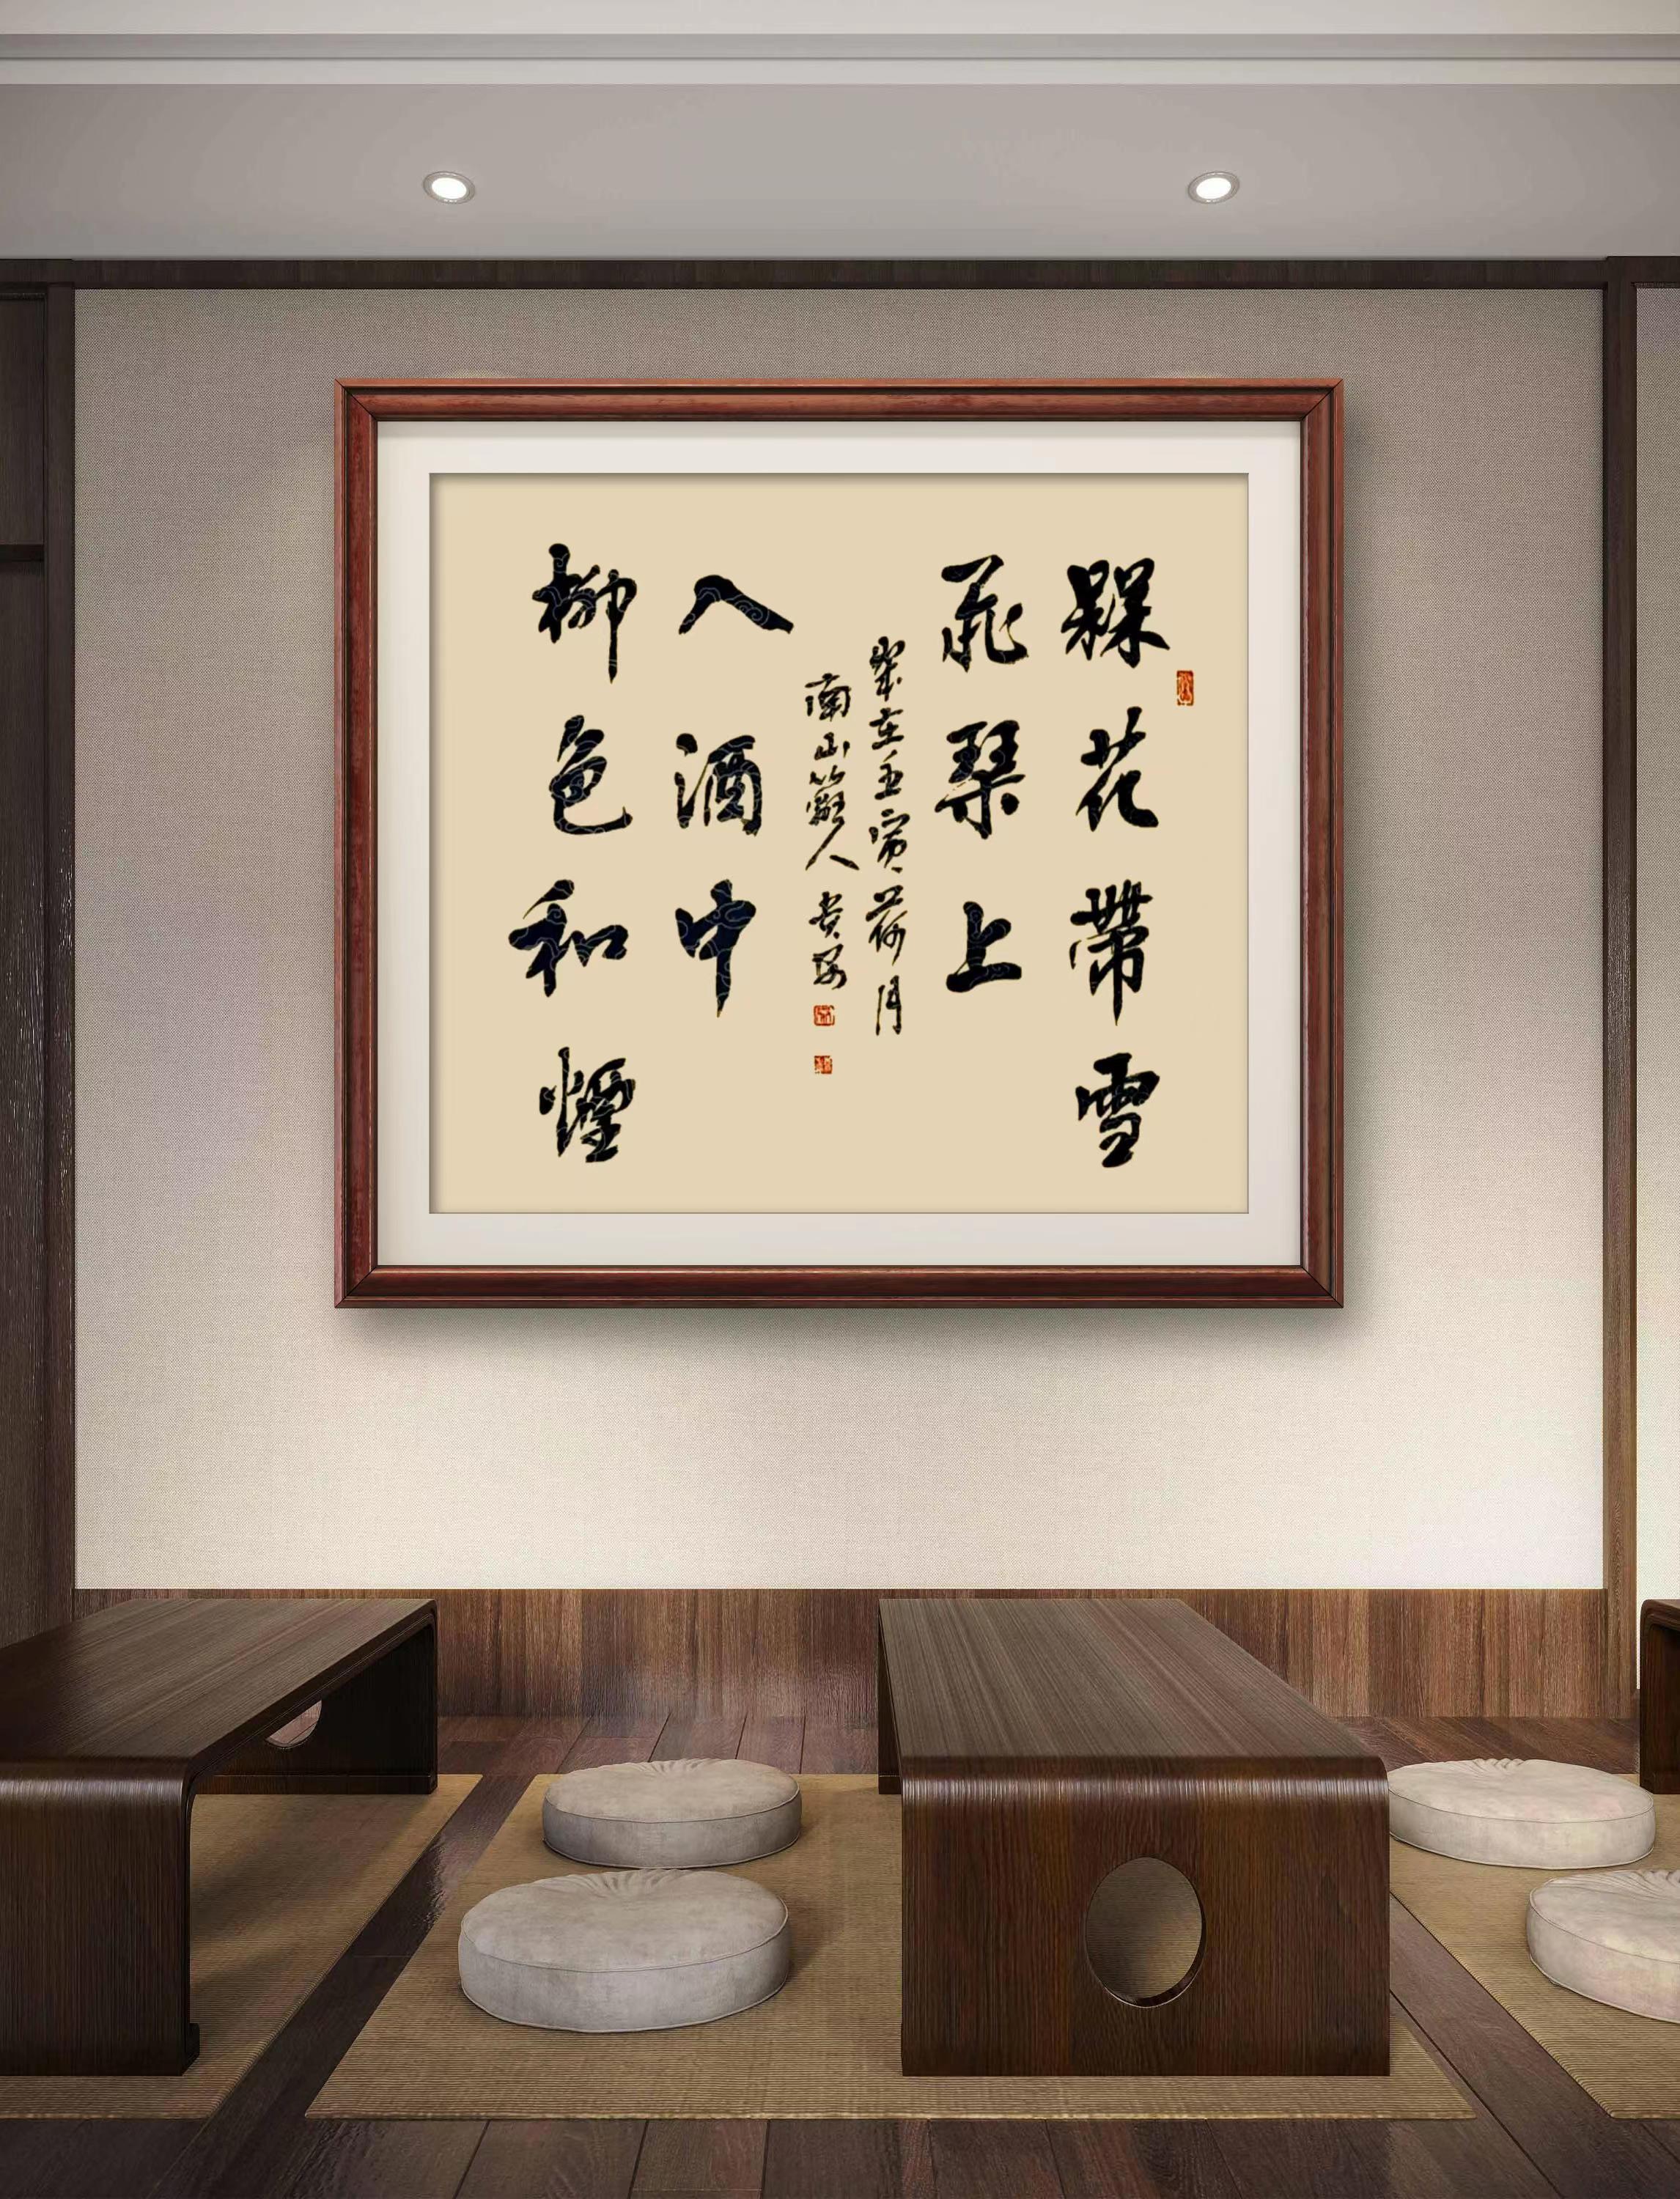 槑花帶雪
飛琹上
柳色和煙
入酒中
歲在壬寅荷月
南山人